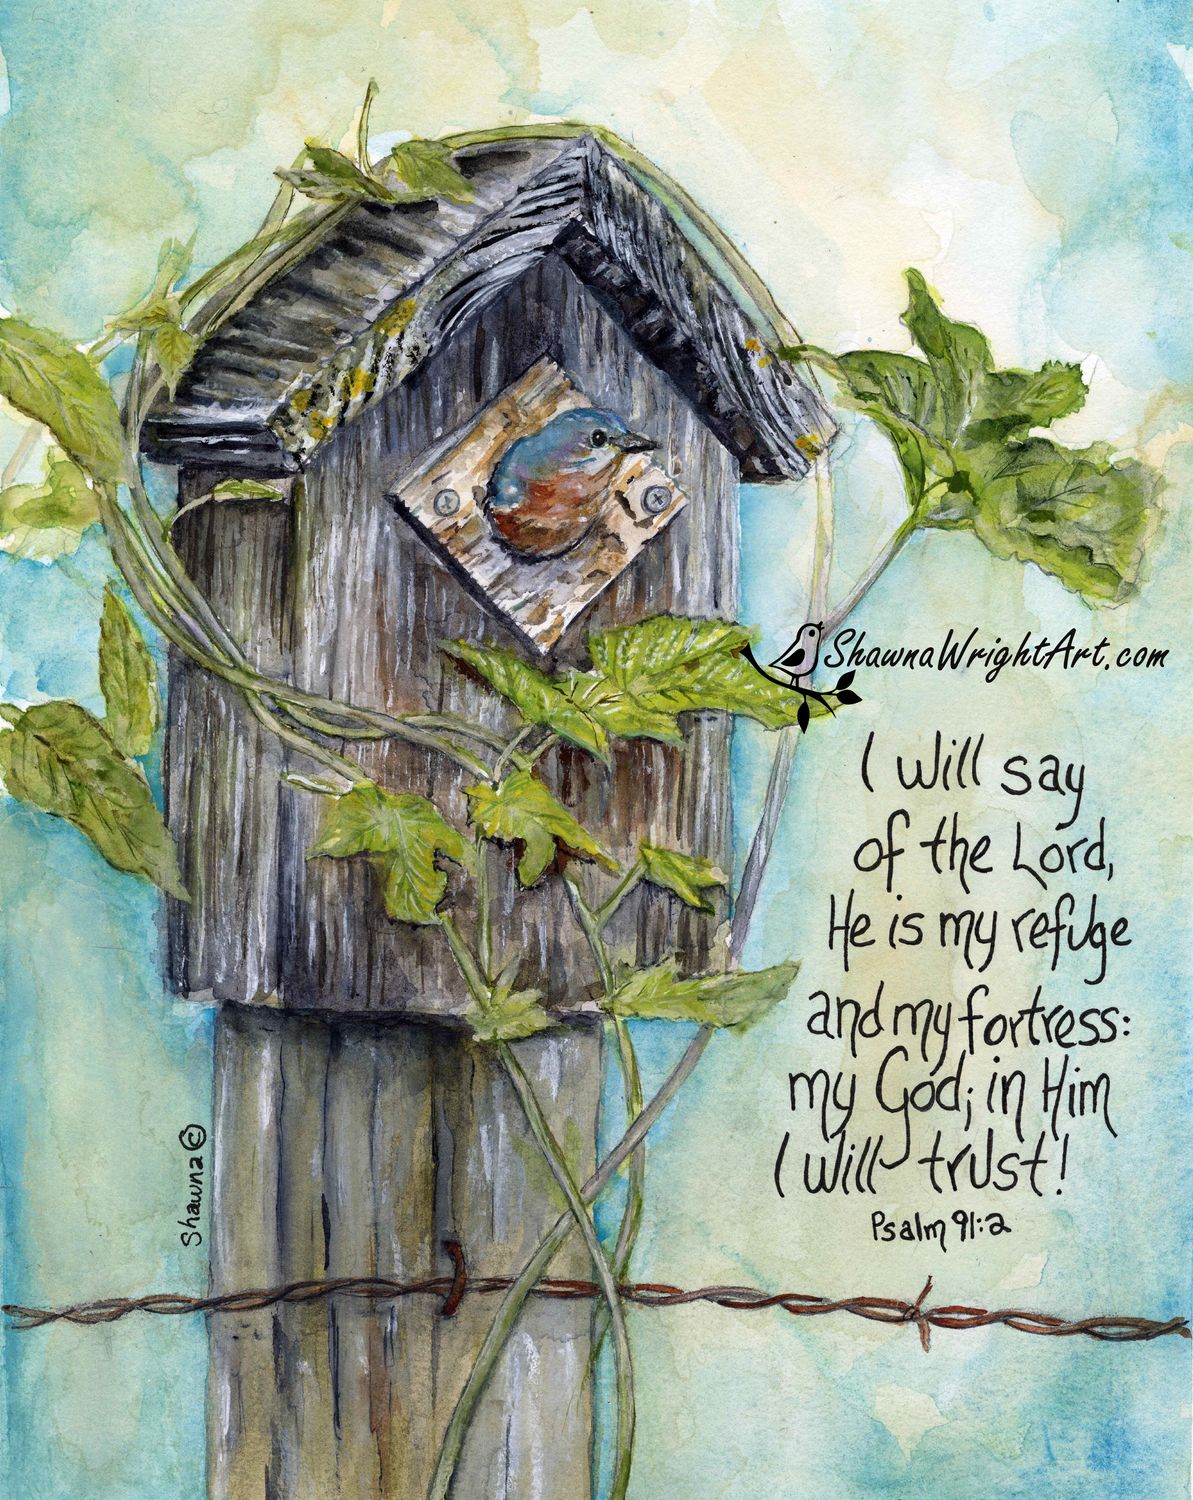 ShawnaWrightArt.com
I will say
of the Lord,
He is my refuge
and my fortress:
my God; in Him
I will trust!
Psalm 91:2
Shawna ©